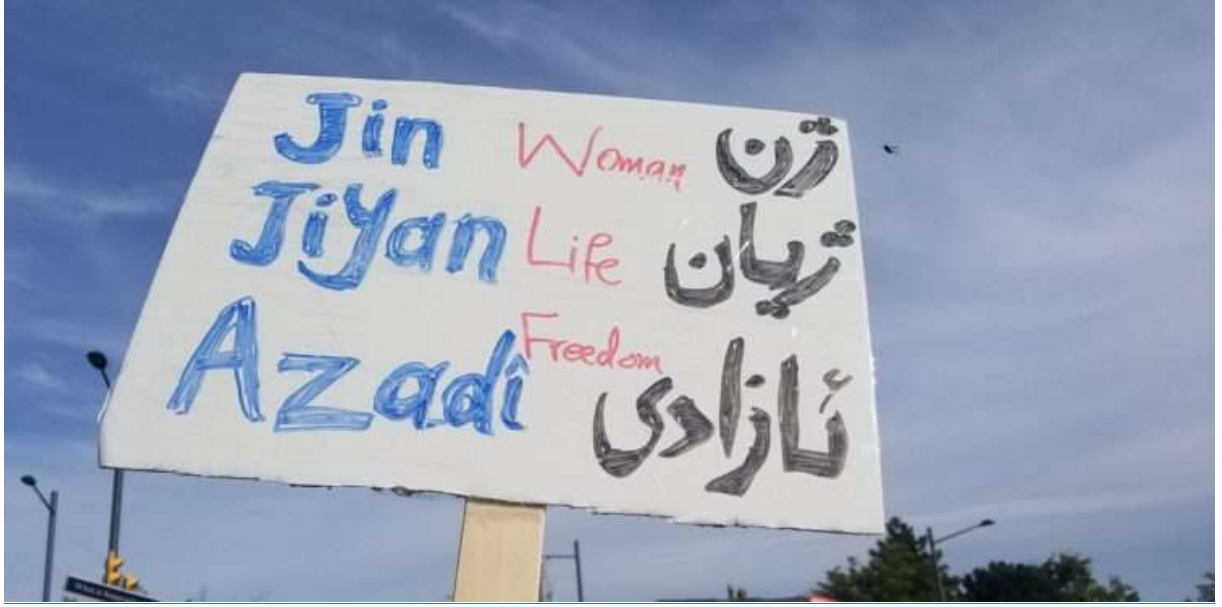 Jin Woman ژن
Jiyan Life ژیان
Azadî Freedom ئازادی